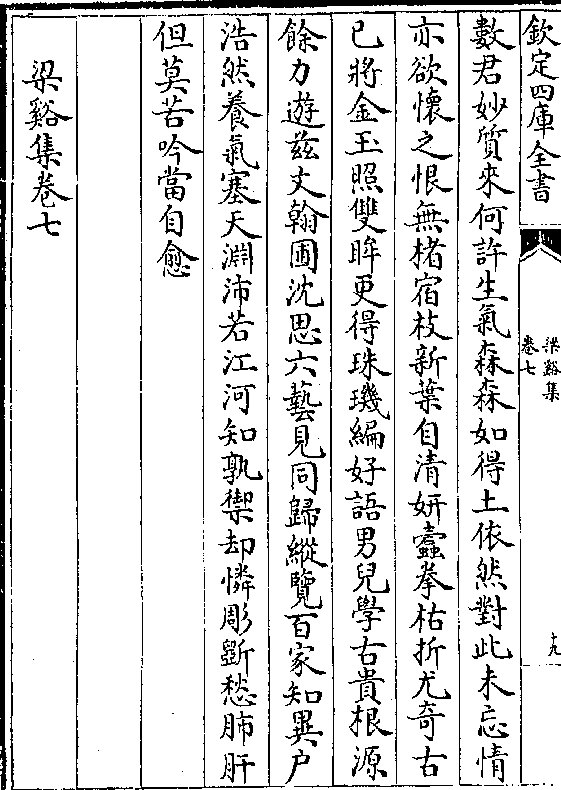 欽定四庫全書
梁谿集
卷七
十九
數君妙質來何許生氣森森如得土依然對此未忘情
亦欲懷之恨無楮宿枝新葉自清妍蠧拳枯折尤奇古
已將金玉照雙眸更得珠璣編好語男兒學古貴根源
餘力遊兹丈翰圃沈思六藝見同歸縱覽百家知異户
浩然養氣塞天淵沛若江河知孰禦却憐彫斵愁肺肝
但莫苦吟當自愈
梁谿集卷七